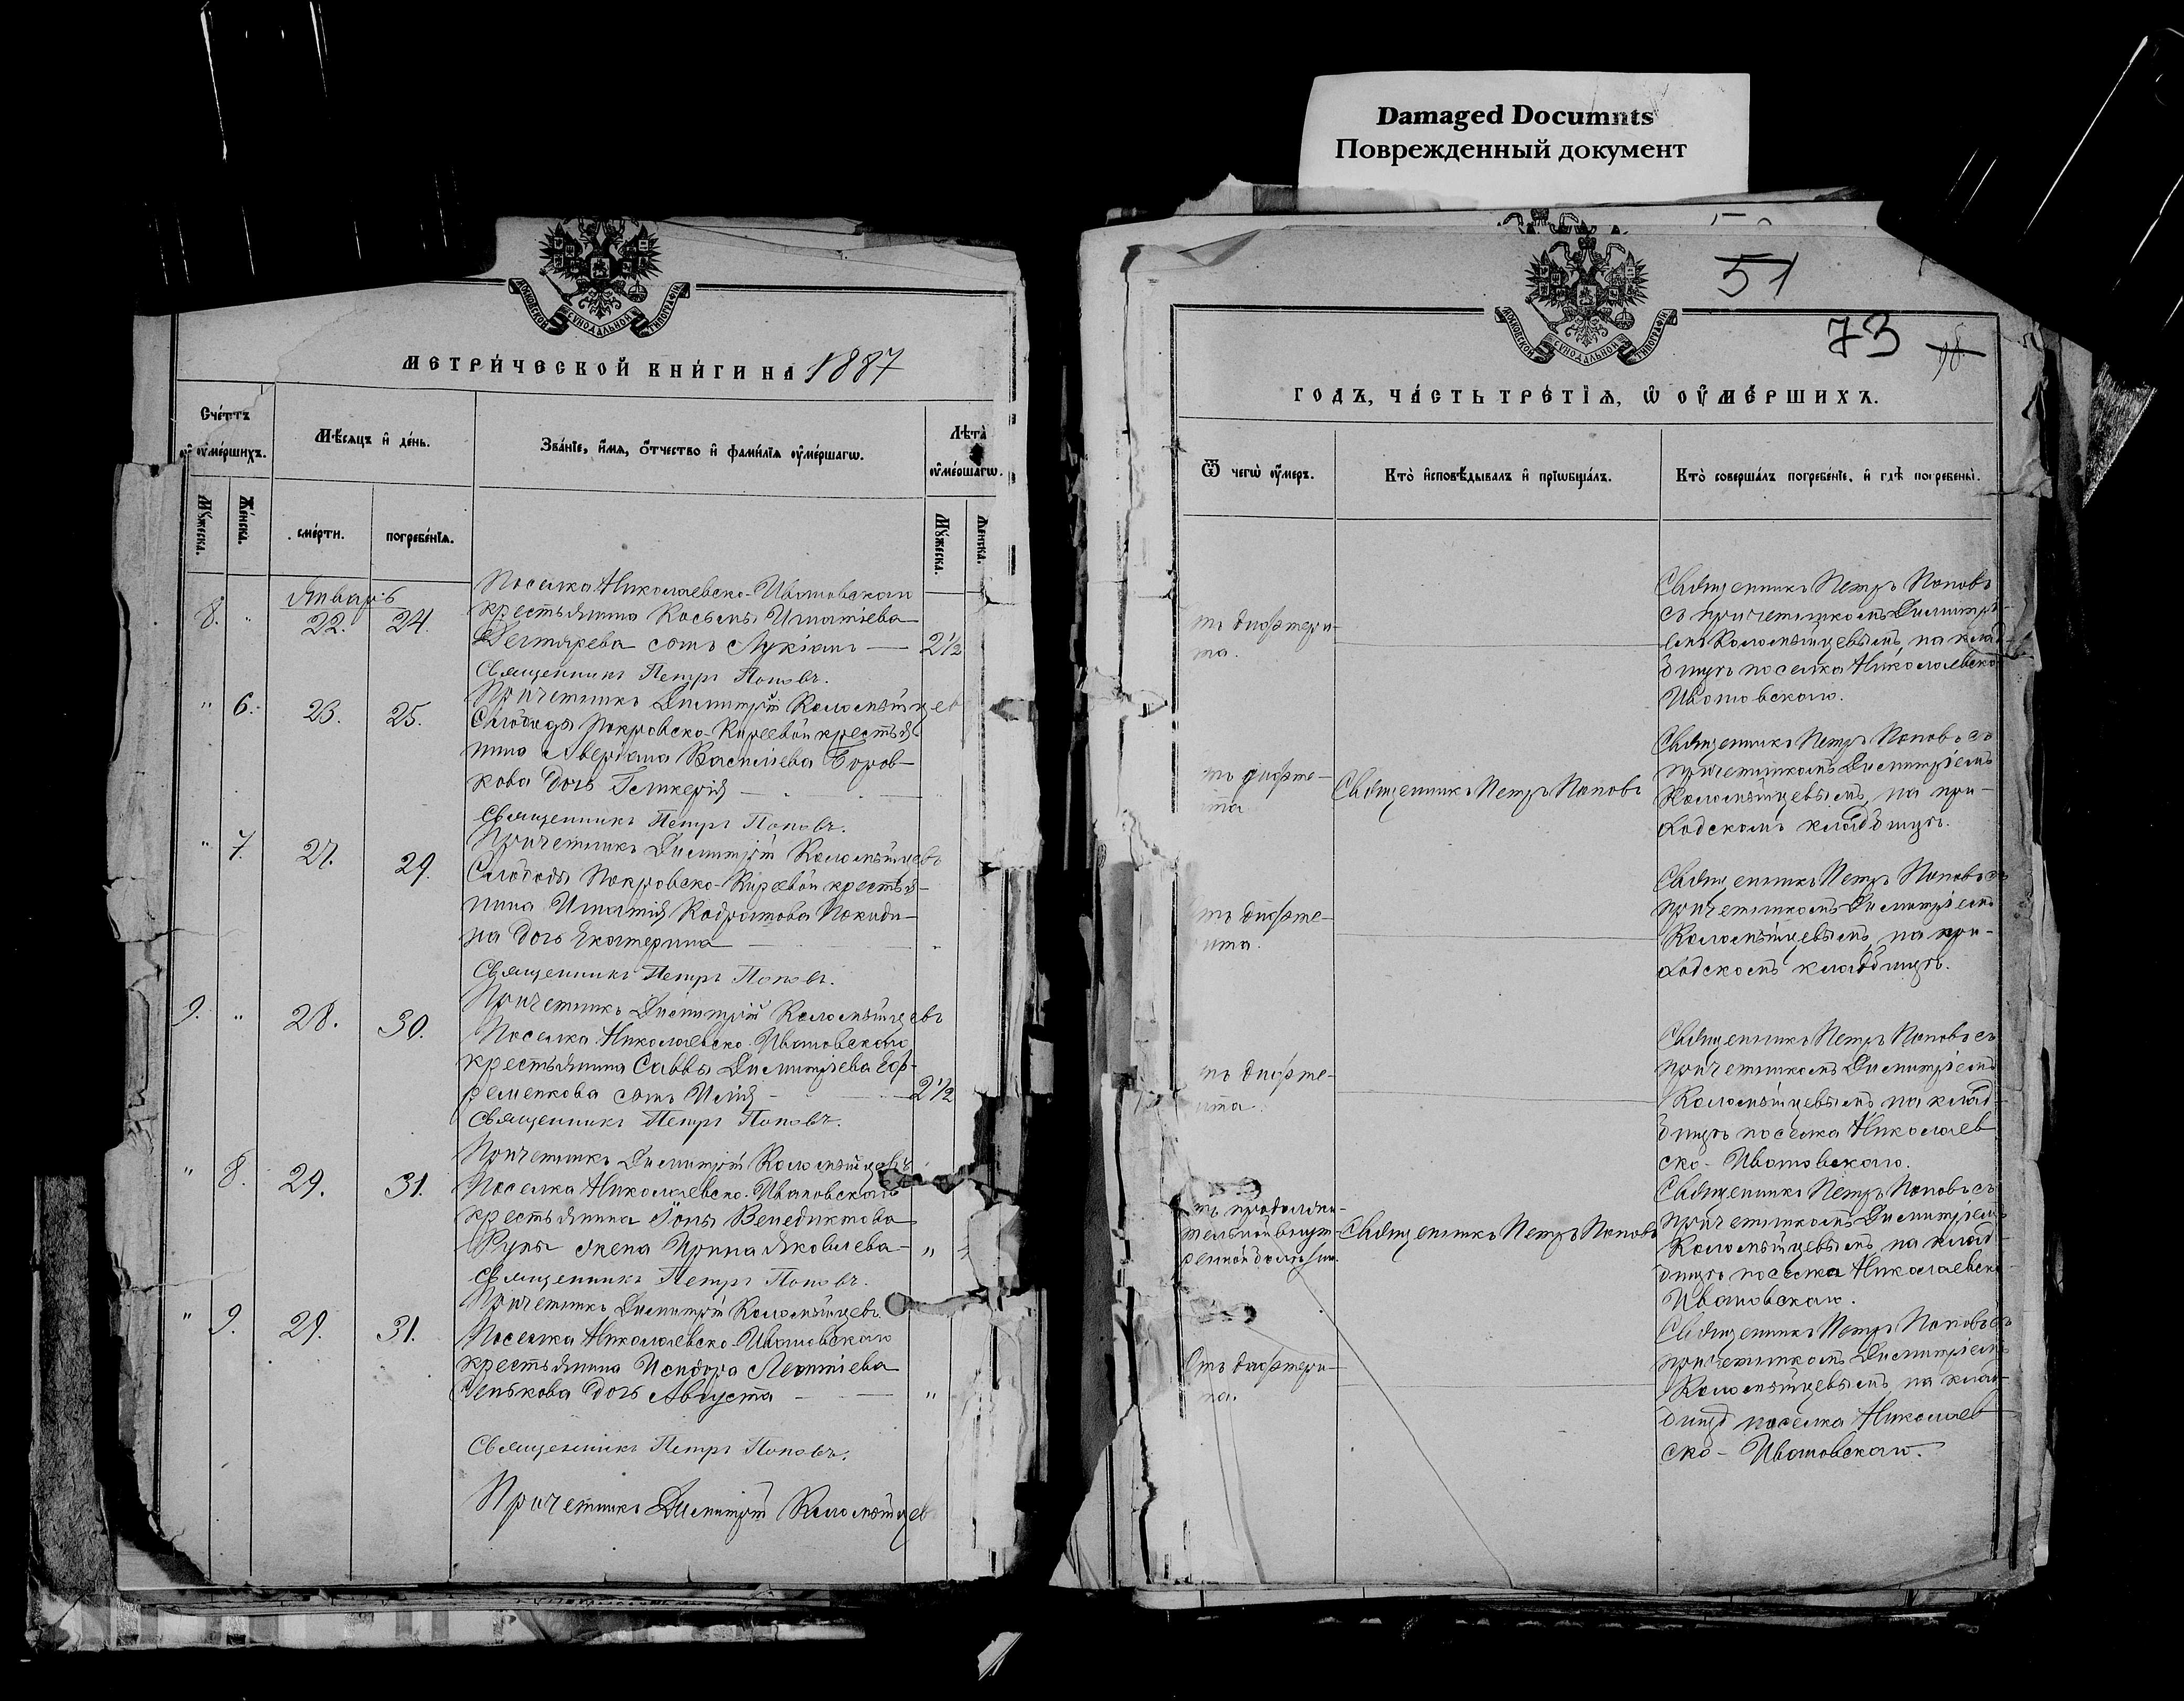 Damaged Documnts
Поврежденный документ
51
73
МОСКОВСКОЙ СѴНОДАЛЬНОЙ ТИПОГРАФІИ
МЕТРИ́ЧЕСКОЙ КНИ́ГИ НА 1887
Сче́тъ ᲂу҆ме́ршихъ.
Мѣ́сяцъ и҆ де́нь.
Зва́нїе, и҆́мѧ, ѻ҆́тчество и҆ фами́лїѧ ᲂу҆ме́ршагѡ.
Лѣ́та ᲂу҆ме́ршагѡ.
Мꙋ́жеска.
Же́нска.
сме́рти.
погребе́нїѧ.
Мꙋ́жеска.
Же́нска.
Январь
8. " 22. 24.
Поселка Николаевско-Ивановскаго
крестьянина Косьмы Игнатіева
Дегтярева сынъ Лукіанъ — 2½
Священникъ Петръ Поповъ.
Причетникъ Димитрій Коломѣйцев
" 6. 23. 25.
Слободы Покровско-Киреевой крестья-
нина Аверіана Василіева Боров-
кова дочь Гликерія —
Священникъ Петръ Поповъ.
Причетникъ Димитрій Коломѣйцевъ
" 7. 27. 29.
Слободы Покровско-Киреевой крестья-
нина Игнатія Кодратова Покиди-
на дочь Екатерина —
Священникъ Петръ Поповъ.
Причетникъ Димитрій Коломѣйцевъ
9. " 28. 30.
Поселка Николаевско-Ивановскаго
крестьянина Саввы Димитріева Еф-
ременкова сынъ Илія — 2½
Священникъ Петръ Поповъ.
Причетникъ Димитрій Коломѣйцевъ
" 8. 29. 31.
Поселка Николаевско-Ивановскаго
крестьянина Іоны Венедиктова
жена Ирина Яковлева — "
Священникъ Петръ Поповъ.
Причетникъ Димитрій Коломѣйцевъ
" 9. 29. 31.
Поселка Николаевско-Ивановскаго
крестьянина Исидора Леонтіева
Сенькова дочь Августа — "
Священникъ Петръ Поповъ.
Причетникъ Димитрій Коломѣйцев
МОСКОВСКОЙ СѴНОДАЛЬНОЙ ТИПОГРАФІИ
ГОДЪ, ЧА́СТЬ ТРЕ́ТЇѦ, Ѡ҆ ОУ҆МЕ́РШИХЪ.
Ѿ чегѡ̀ ᲂу҆́меръ.
Кто̀ и҆сповѣ́дывалъ и҆ прїѡбща́лъ.
Кто̀ соверша́лъ погребе́нїе, и҆ гдѣ̀ погребены̀.
тъ дифтери-
та.
Священникъ Петръ Поповъ
съ причетникомъ Димитрі-
емъ Коломѣйцевымъ, на клад-
бищѣ поселка Николаевско
Ивановскаго.
тъ дифте-
ита
Священникъ Петръ Поповъ
Священникъ Петръ Поповъ съ
причетникомъ Димитріемъ
Коломѣйцевымъ, на при-
ходскомъ кладбищѣ.
тъ дифте-
ита.
Священникъ Петръ Поповъ съ
причетникомъ Димитріемъ
Коломѣйцевымъ, на при-
ходскомъ кладбищѣ.
тъ дифте-
ита.
Священникъ Петръ Поповъ съ
причетникомъ Димитріемъ
Коломѣйцевымъ на клад-
бищѣ поселка Николаев
ско-Ивановскаго.
тъ продолжи-
тельной внут-
ренней болѣзни
Священникъ Петръ Поповъ
Священникъ Петръ Поповъ съ
причетникомъ Димитріемъ
Коломѣйцевымъ, на клад-
бищѣ поселка Николаевско
Ивановскаго.
Отъ дифтери-
та.
Священникъ Петръ Поповъ съ
причетникомъ Димитріемъ
Коломѣйцевымъ, на клад-
бищѣ поселка Николаев
ско-Ивановскаго.